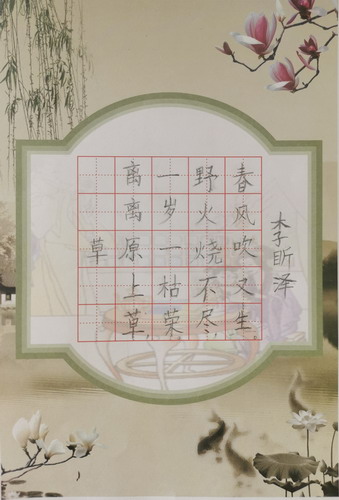 草
离离原上草,
一岁一枯荣,
野火烧不尽,
春风吹又生。
李昕泽